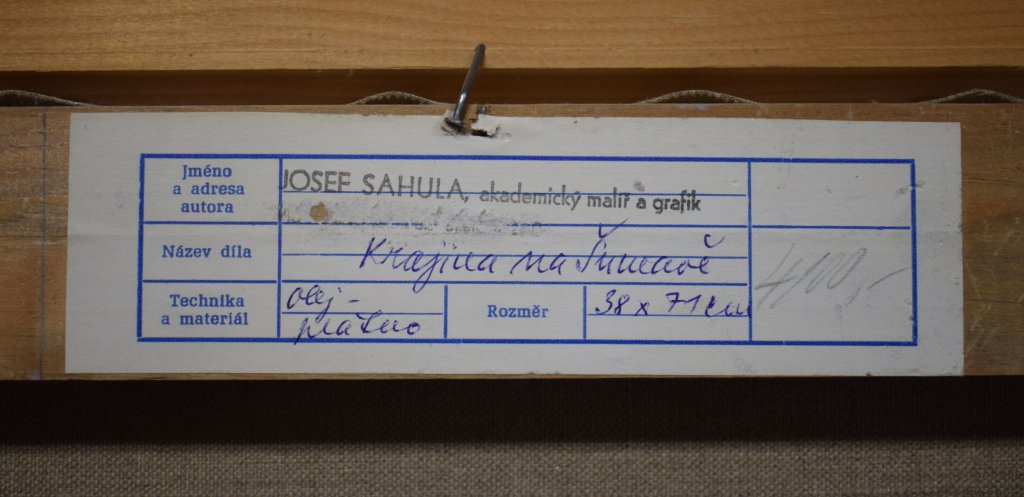 Jméno
a adresa
autora
JOSEF SAHULA, akademický malíř a grafik
Název díla
Krajina na Šumavě
Technika
a materiál
olej -
plátno
Rozměr
38 x 71 cm
4100,-